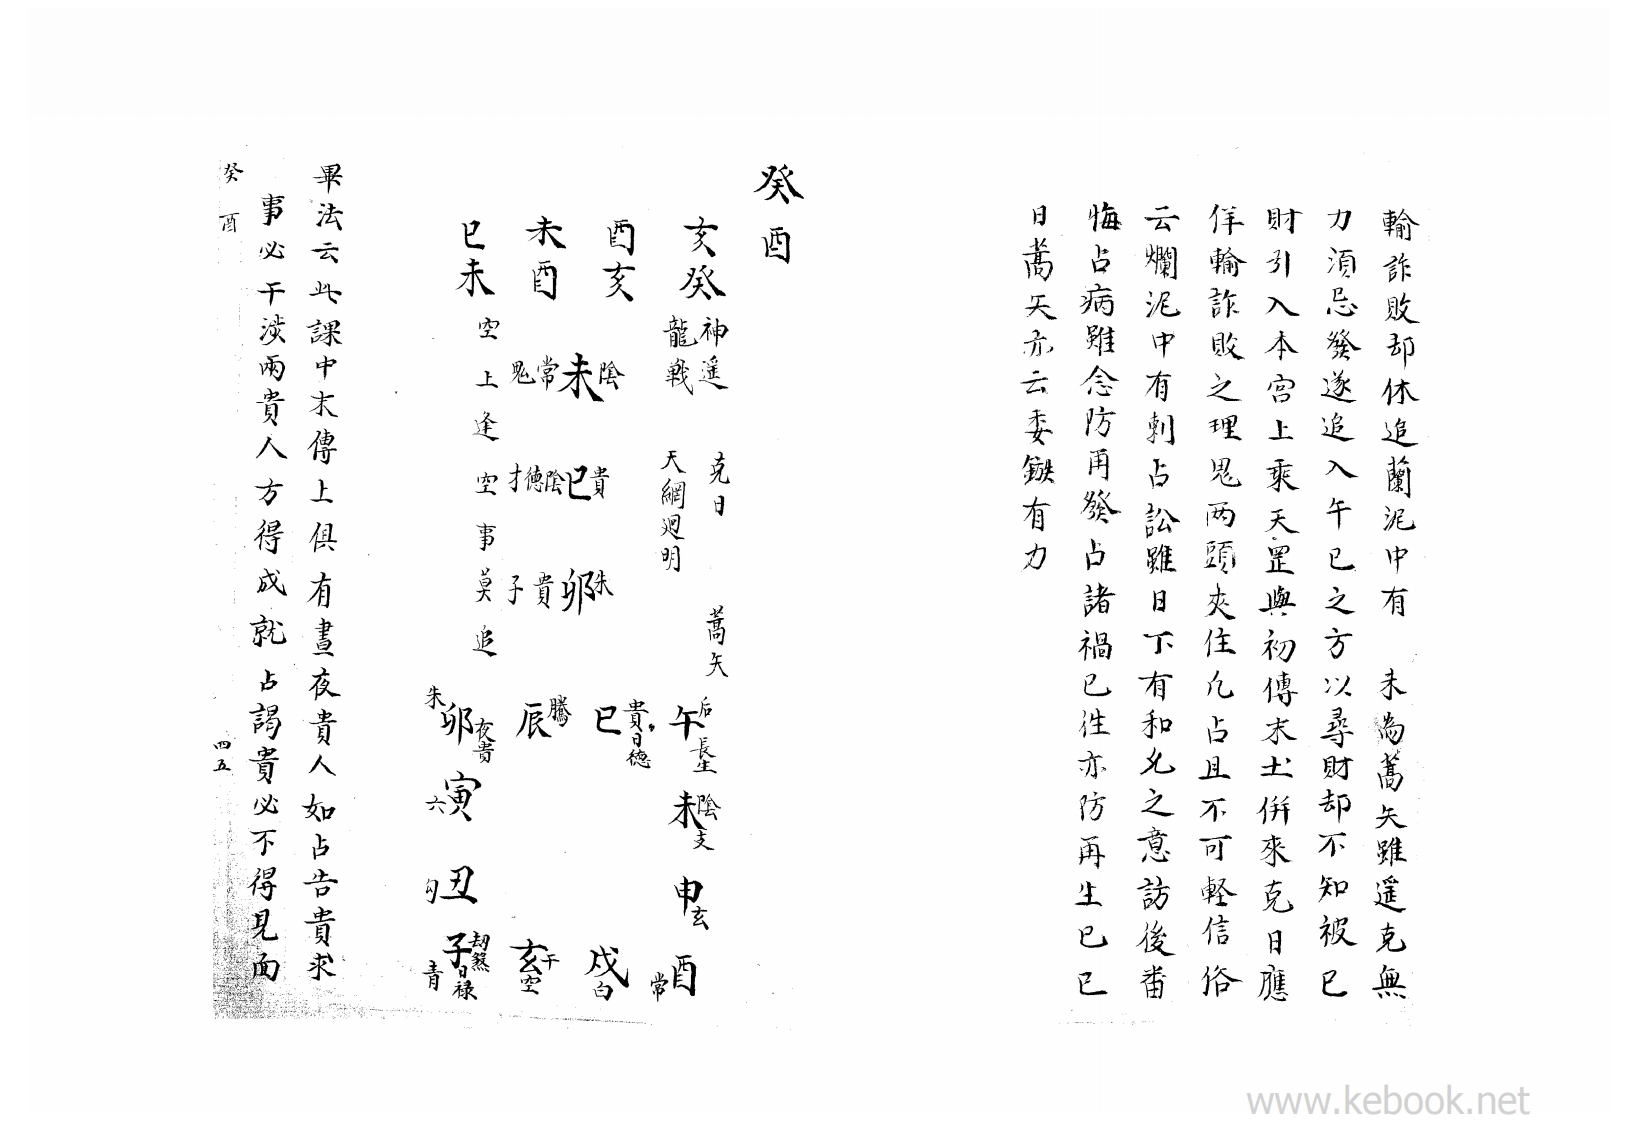 輸詐敗却休追蘭泥中有 未為蒿矢雖遥克無
力須忌發遂追入午巳之方以尋財却不知被巳
財引入本宫上乘天罡與初傳末土併來克日應
佯輸詐敗之理鬼两頭夾住凢占且不可軽信俗
云爛泥中有刺占訟雖日下有和允之意訪後番
悔占病雖念防再發占諸禍已徃亦防再生已已
日蒿矢亦云委鏃有力
癸酉
亥癸 神遥 龍戰 克日 天網迴明 蒿矢
酉亥
未酉
巳未
陰未常鬼
貴巳陰德才
朱卯貴子
空上逢空事莫追
巳貴日德 午后長生 未陰支 申玄
辰騰 酉常
卯夜貴朱 戌白
寅六 丑勾 子劫煞日禄青 亥干空
畢法云此課中末傳上俱有晝夜貴人如占告貴求
事必干涉兩貴人方得成就占謁貴必不得見面
癸酉 四五
www.kebook.net